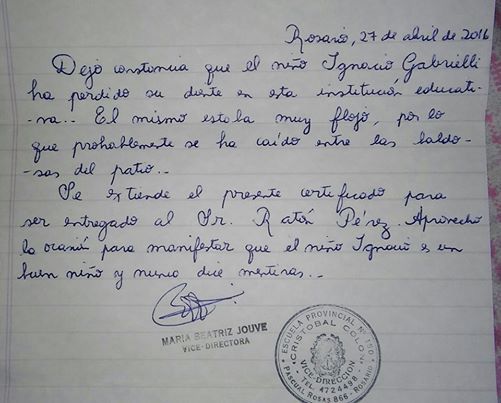 Rosario, 27 de abril de 2016
Dejo constancia que el niño Ignacio Gabrielli
ha perdido su diente en esta institución educati-
-va.. El mismo estaba muy flojo, por lo
que probablemente se ha caído entre las baldo-
-sas del patio..
Se extiende el presente certificado para
ser entregado al Sr. Ratón Pérez. Aprovecho
la ocasión para manifestar que el niño Ignacio es un
buen niño y nunca dice mentiras..
MARIA BEATRIZ JOUVE
VICE-DIRECTORA
ESCUELA PROVINCIAL Nº
CRISTOBAL COLON
VICE-DIRECCION
TEL. 4724498
PASCUAL ROSAS 866 - ROSARIO